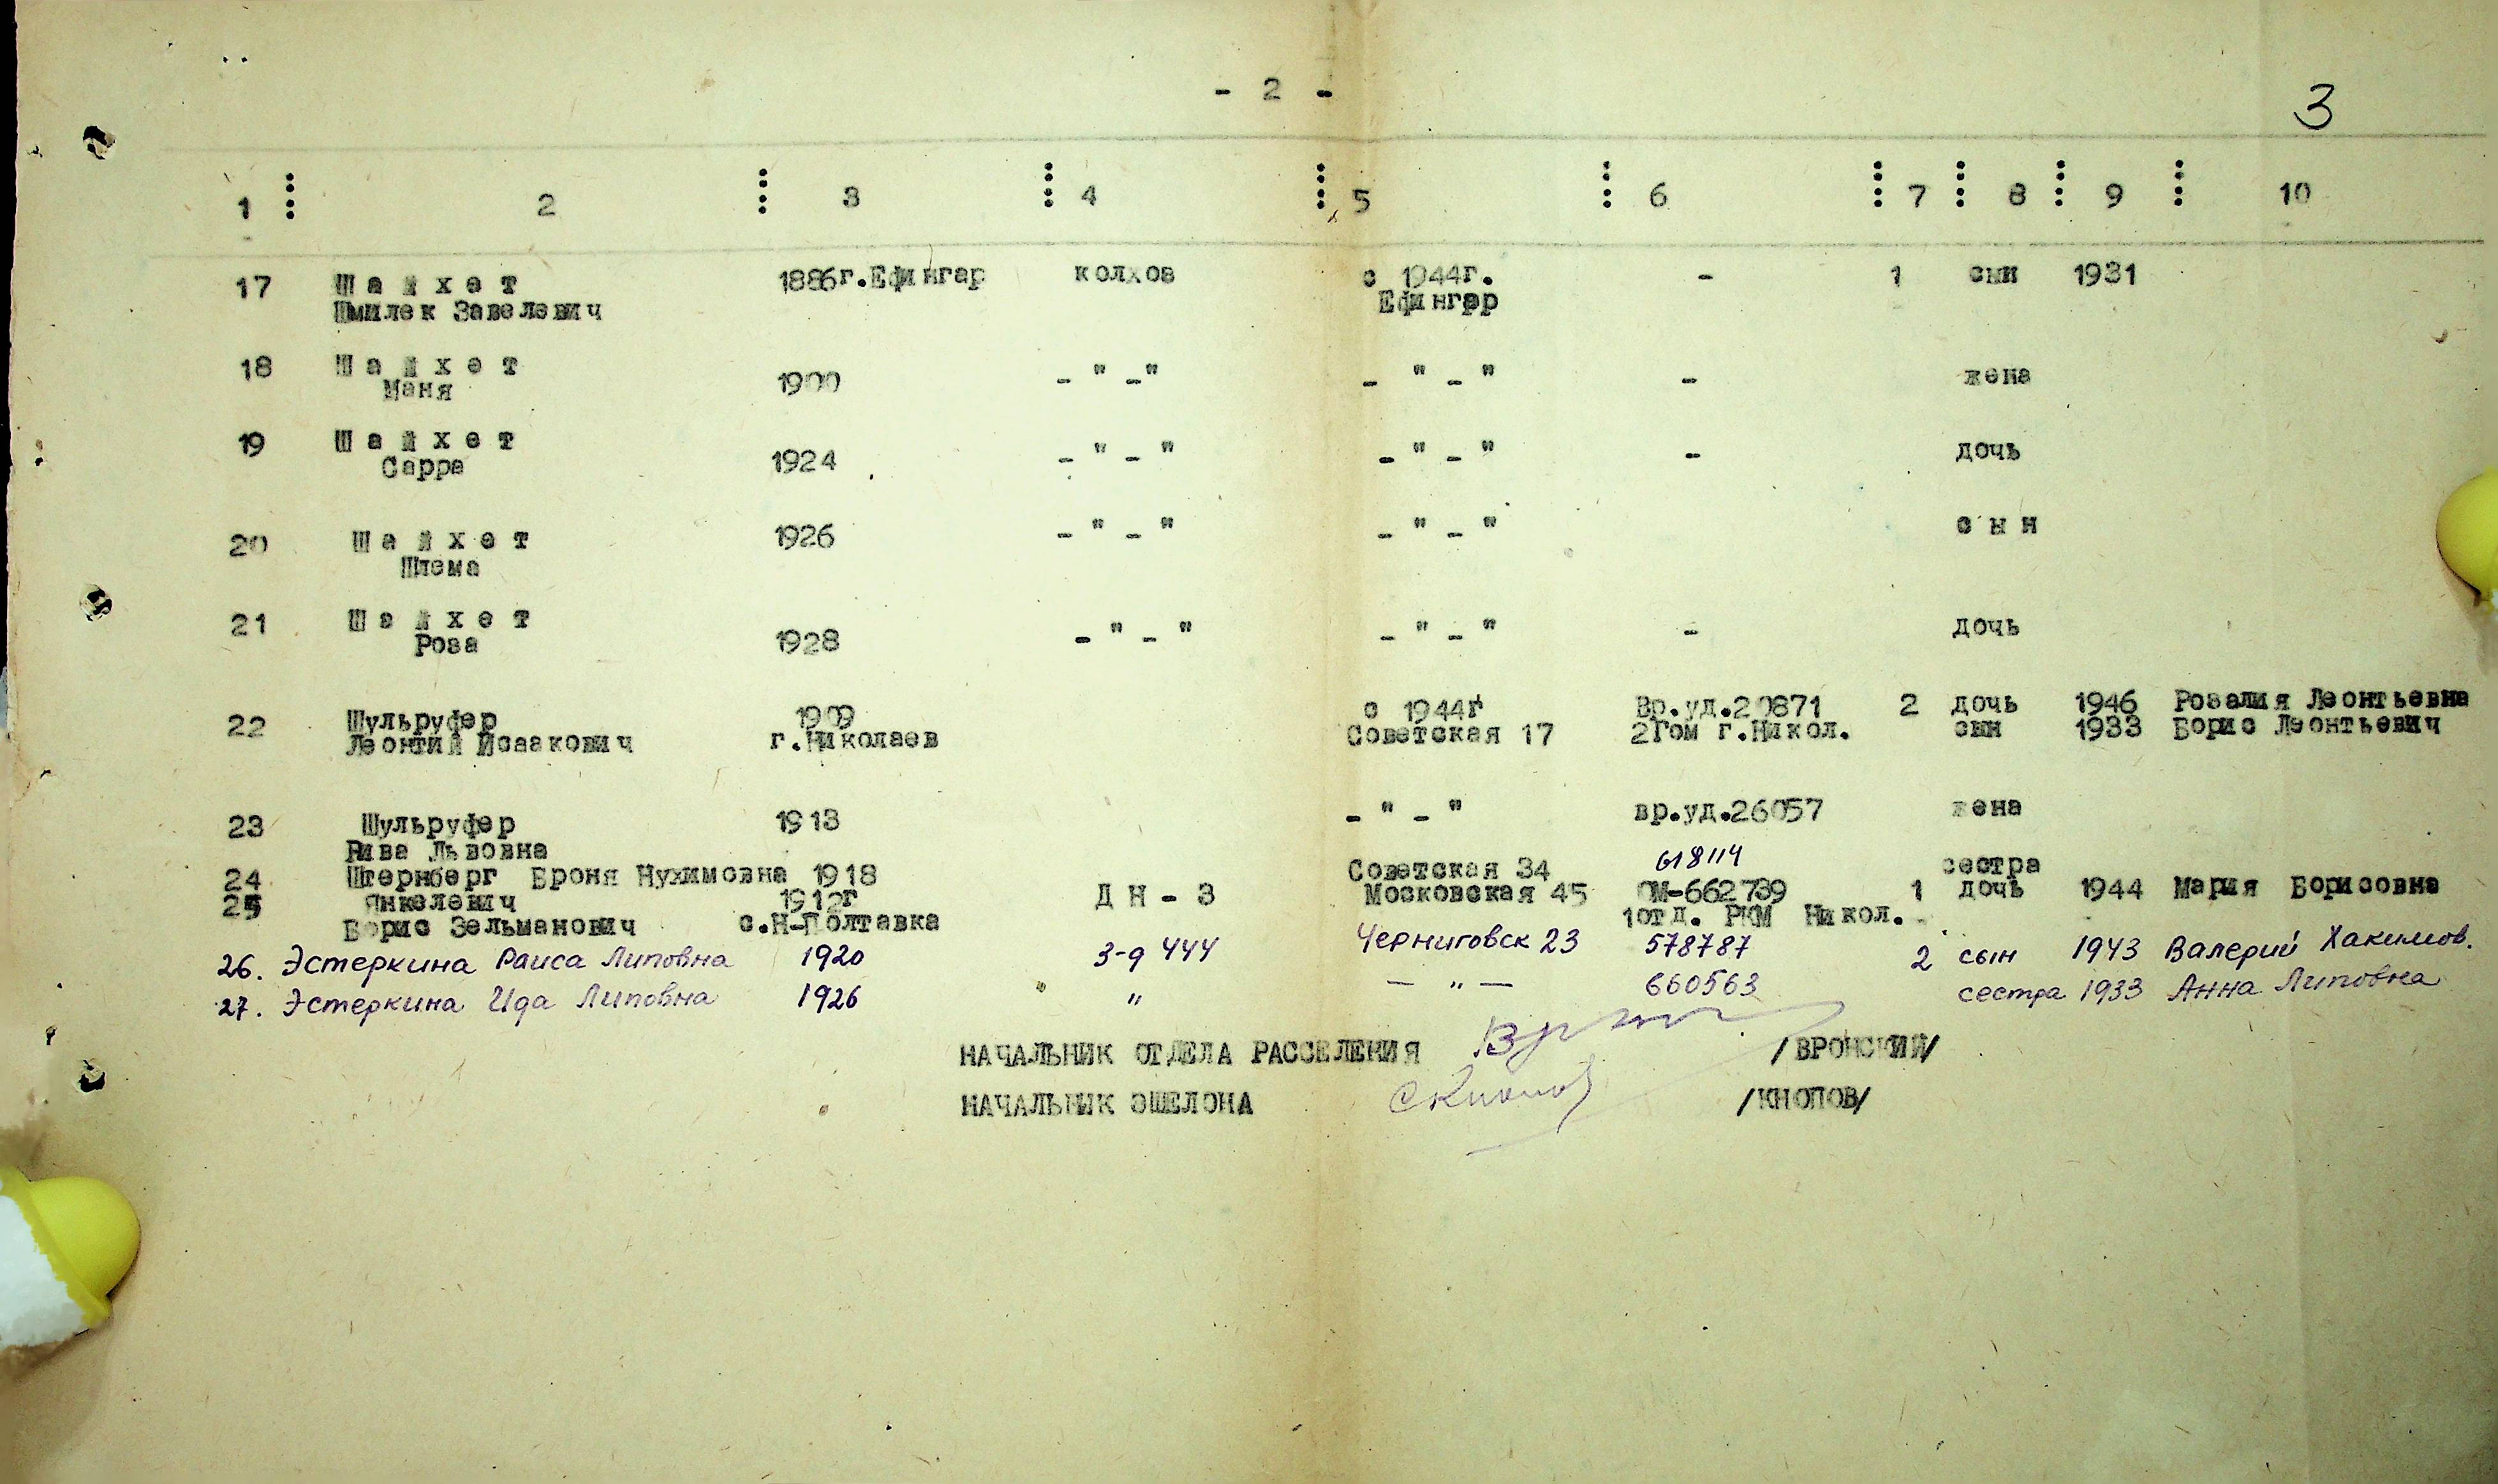 - 2 -
3
1 2 3 4 5 6 7 8 9 10
17 Ш а й х е т 1886г.Ефингар колхоз с 1944г. - 1 сын 1931
Шмилек Завелевич Ефингар
18 Ш а й х е т
Маня 1900 - " -" - " - " - жена
19 Ш а й х е т
Сарра 1924 - " - " - " - " - дочь
20 Ш а й х е т 1926 - " - " - " - " с ы н
Шлема
21 Ш а й х е т
Роза 1928 - " - " - " - " - дочь
22 Шульруфер 1909 с 1944г Вр.уд.20871 2 дочь 1946 Розалия Леонтьевна
Леонтий Исаакович г.Николаев Советская 17 2Гом г.Никол. сын 1933 Борис Леонтьевич
23 Шульруфер 1913 - " - " вр.уд.26057 жена
Рива Львовна
24 Штернберг Броня Нухимовна 1918 Советская 34 618114 сестра
25 Янкелевич 1912г Д Н - 3 Московская 45 ОМ-662739 1 дочь 1944 Мария Борисовна
Борис Зельманович с.Н-Полтавка 1отд. РКМ Никол.
26. Эстеркина Раиса Липовна 1920 З-д 444 Черниговск 23 578787 2 сын 1943 Валерий Хакимов.
27. Эстеркина Ида Липовна 1926 " " — " — 660563 сестра 1933 Анна Липовна
НАЧАЛЬНИК ОТДЕЛА РАССЕЛЕНИЯ /ВРОНСКИЙ/
НАЧАЛЬНИК ЭШЕЛОНА СКнопов /КНОПОВ/